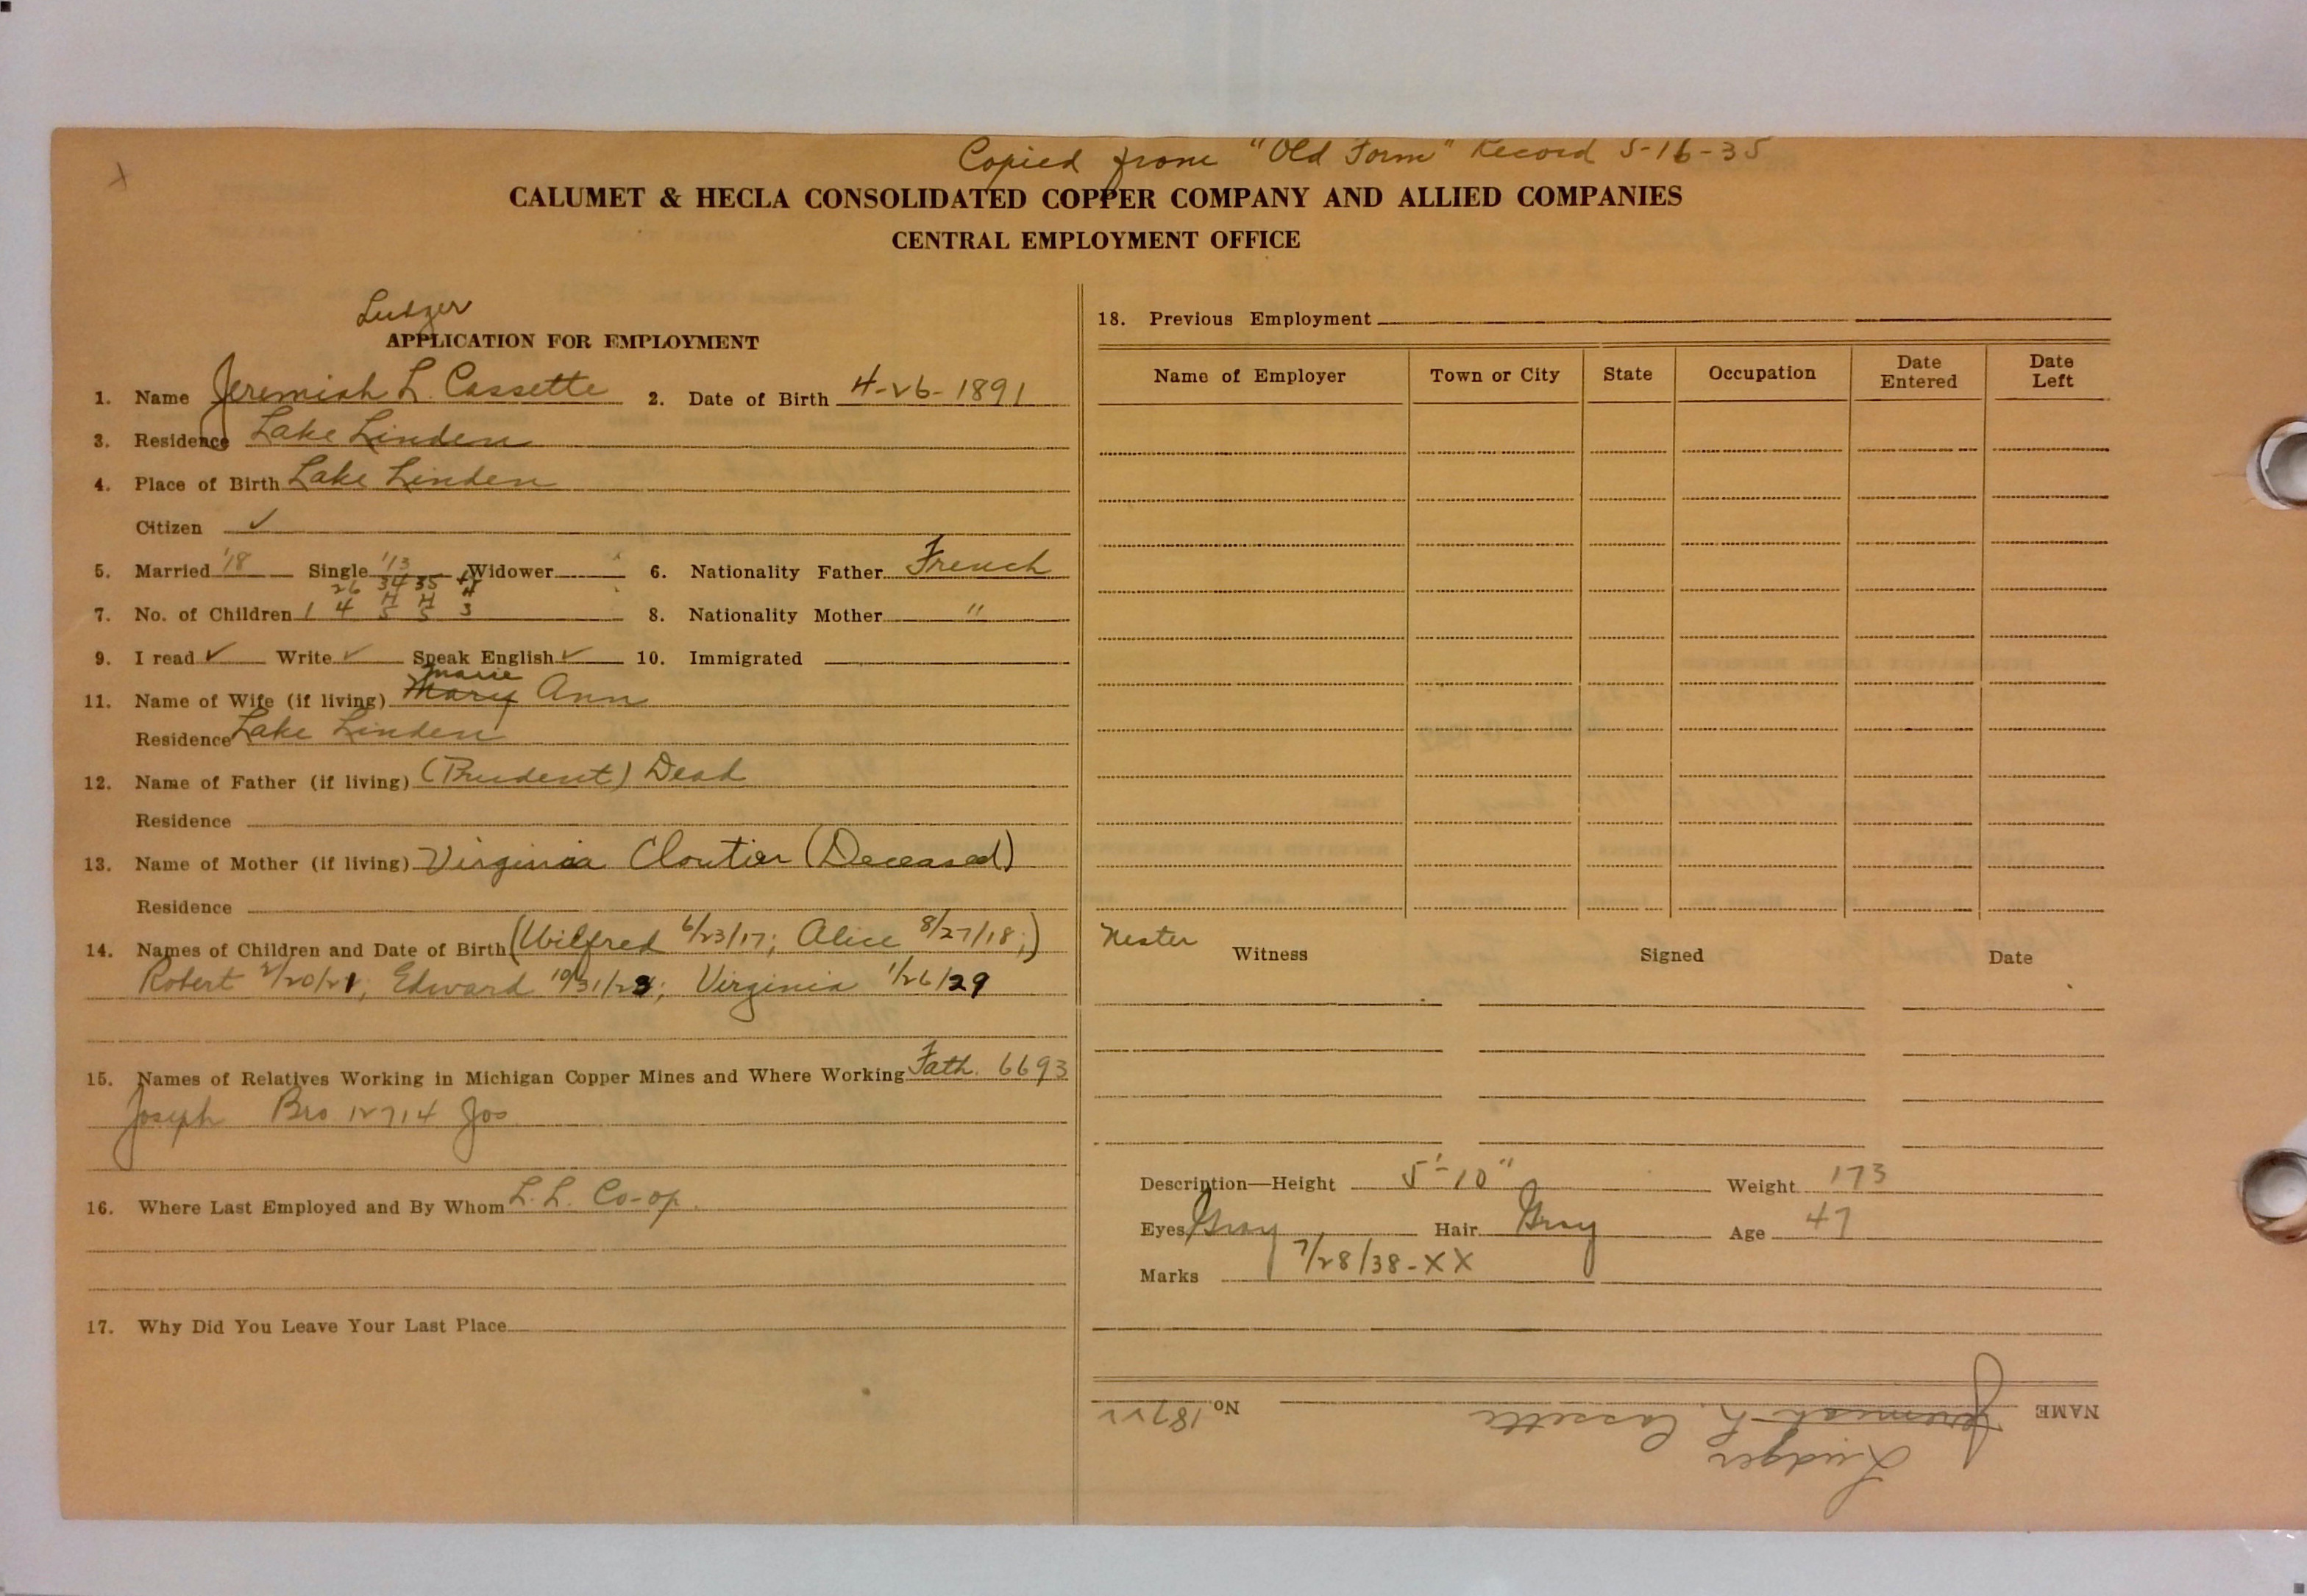 Copied from "Old Form" Record 5-16-35
CALUMET & HECLA CONSOLIDATED COPPER COMPANY AND ALLIED COMPANIES
CENTRAL EMPLOYMENT OFFICE
Ludger
APPLICATION FOR EMPLOYMENT
1. Name Jeremiah L. Cassette 2. Date of Birth 4-26-1891
3. Residence Lake Linden
4. Place of Birth Lake Linden
Citizen ✓
5. Married '18 Single '13 Widower 6. Nationality Father French
26 34 35 41
4 4 4
7. No. of Children 1 4 5 5 3 8. Nationality Mother "
9. I read ✓ Write ✓ Speak English ✓ 10. Immigrated
Marie
11. Name of Wife (if living) Mary Ann
Residence Lake Linden
12. Name of Father (if living) (Prudent) Dead
Residence
13. Name of Mother (if living) Virginia Cloutier (Deceased)
Residence
14. Names of Children and Date of Birth (Wilfred 6/23/17; Alice 8/27/18;)
Robert 2/20/21; Edward 10/31/23; Virginia 1/26/29
15. Names of Relatives Working in Michigan Copper Mines and Where Working Fath. 6693
Joseph Bro 12714 Jos
16. Where Last Employed and By Whom L.L. Co-op.
17. Why Did You Leave Your Last Place
18. Previous Employment
Name of Employer Town or City State Occupation Date Entered Date Left
Nester
Witness Signed Date
Description—Height 5'-10" Weight 173
Eyes Gray Hair Gray Age 47
Marks 7/28/38-XX
NAME Jeremiah L. Cassette No 18722
Ludger